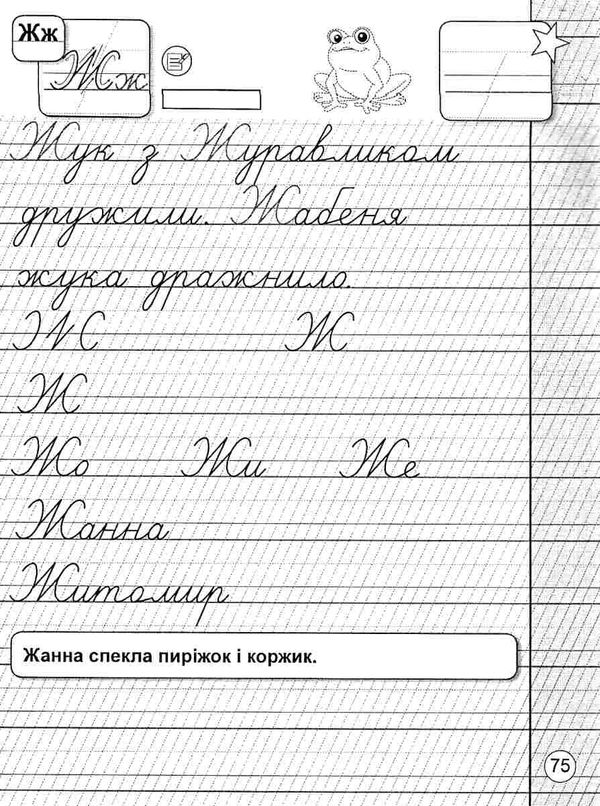 Жж
Жж
Жук з Журавликом
дружили. Жабеня
жука дражнило.
Ж Ж
Ж
Жо Жи Же
Жанна
Житомир
Жанна спекла пиріжок і коржик.
75